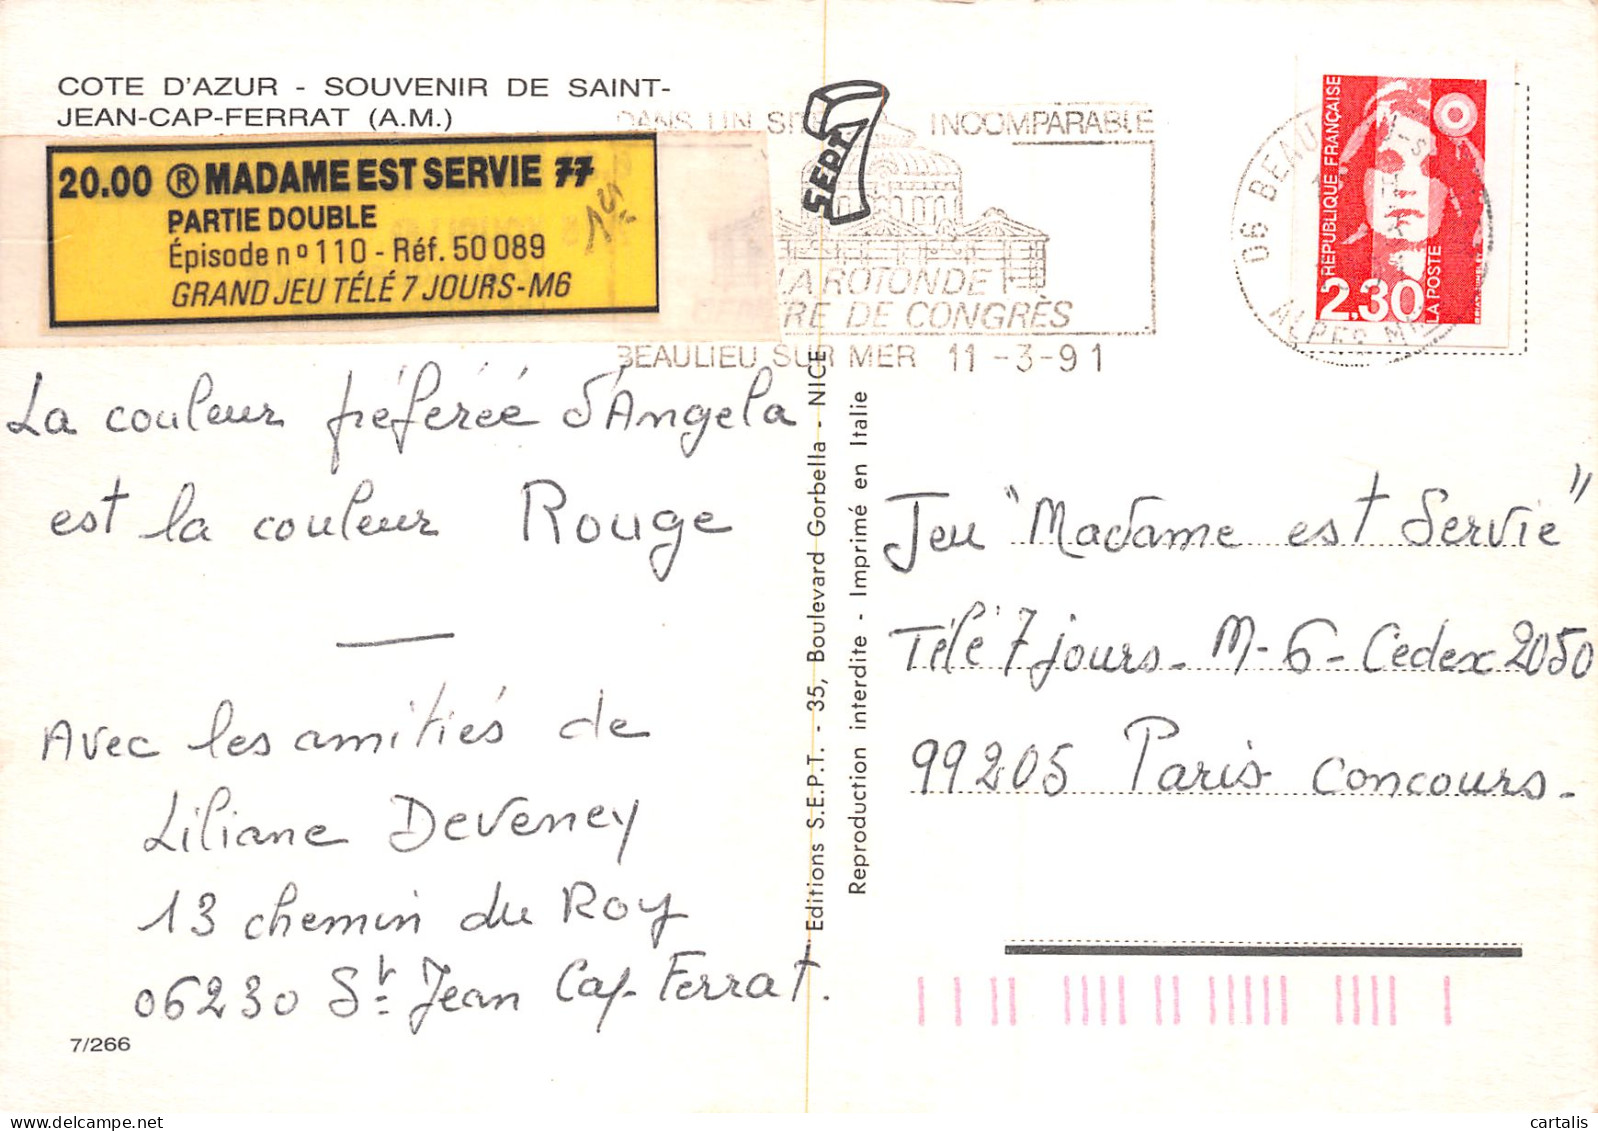 COTE D'AZUR - SOUVENIR DE SAINT-
JEAN-CAP-FERRAT (A.M.)
20.00 ® MADAME EST SERVIE 77
PARTIE DOUBLE
Épisode nº 110 - Réf. 50 089
GRAND JEU TÉLÉ 7 JOURS-M6
La couleur préférée d'Angela
est la couleur Rouge
—
Avec les amitiés de
Liliane Deveney
13 chemin du Roy
06230 St Jean Cap Ferrat.
7/266
SEPT
DANS UN SITE INCOMPARABLE
LA ROTONDE
RE DE CONGRÈS
BEAULIEU SUR MER 11-3-91
Editions S.E.P.T. - 35, Boulevard Gorbella - NICE
Reproduction interdite - Imprimé en Italie
06 BEAU
ALPES M
REPUBLIQUE FRANÇAISE
2.30
LA POSTE
Jeu "Madame est Servie"
Télé 7 jours - M-6 - Cedex 2050
99205 Paris concours -
cartalis